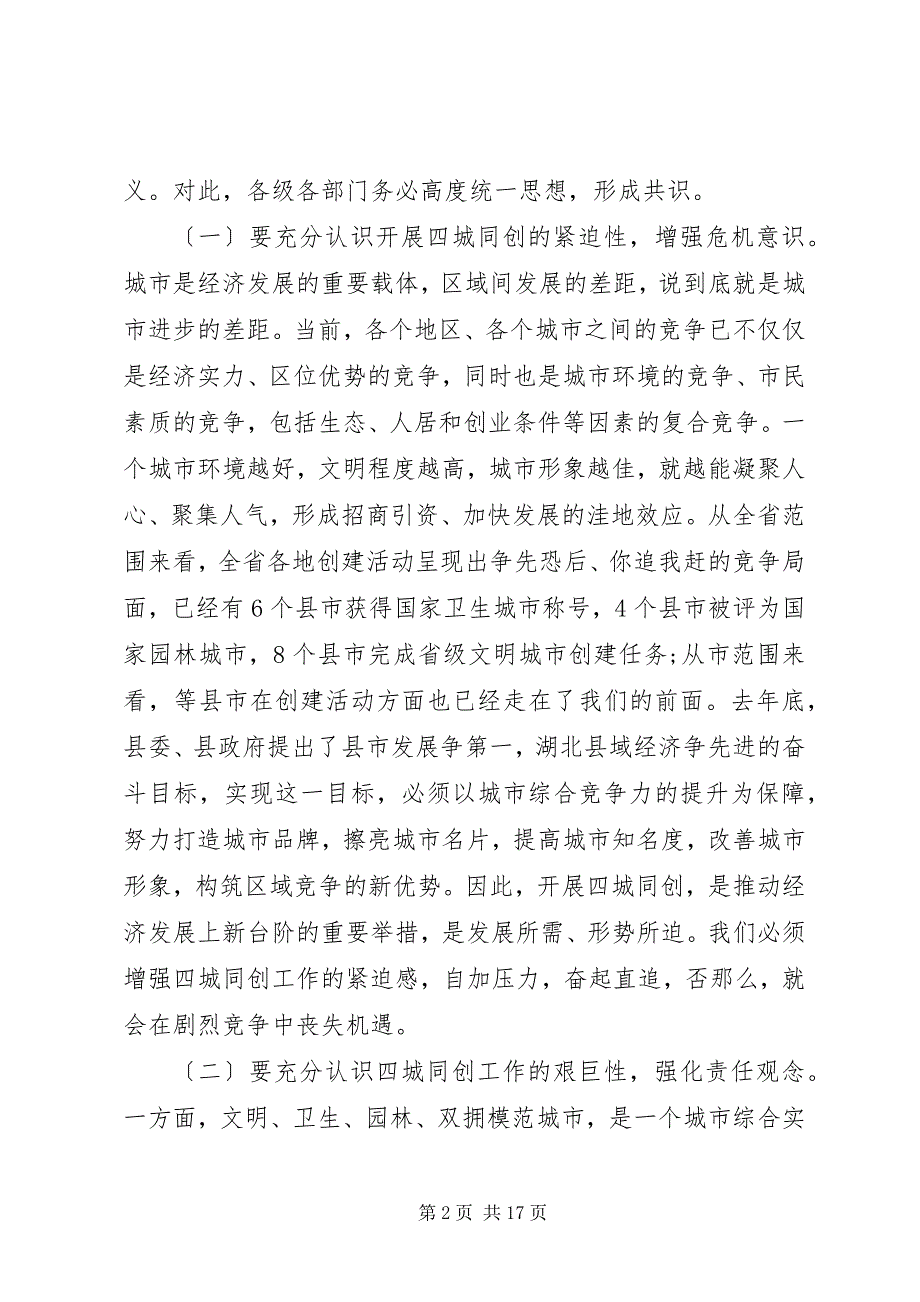 义。对此，各级各部门务必高度统一思想，形成共识。
〔一〕要充分认识开展四城同创的紧迫性，增强危机意识。
城市是经济发展的重要载体，区域间发展的差距，说到底就是城
市进步的差距。当前，各个地区、各个城市之间的竞争已不仅仅
是经济实力、区位优势的竞争，同时也是城市环境的竞争、市民
素质的竞争，包括生态、人居和创业条件等因素的复合竞争。一
个城市环境越好，文明程度越高，城市形象越佳，就越能凝聚人
心、聚集人气，形成招商引资、加快发展的洼地效应。从全省范
围来看，全省各地创建活动呈现出争先恐后、你追我赶的竞争局
面，已经有6个县市获得国家卫生城市称号，4个县市被评为国
家园林城市，8个县市完成省级文明城市创建任务;从市范围来
看，等县市在创建活动方面也已经走在了我们的前面。去年底，
县委、县政府提出了县市发展争第一，湖北县域经济争先进的奋
斗目标，实现这一目标，必须以城市综合竞争力的提升为保障，
努力打造城市品牌，擦亮城市名片，提高城市知名度，改善城市
形象，构筑区域竞争的新优势。因此，开展四城同创，是推动经
济发展上新台阶的重要举措，是发展所需、形势所迫。我们必须
增强四城同创工作的紧迫感，自加压力，奋起直追，否那么，就
会在剧烈竞争中丧失机遇。
〔二〕要充分认识四城同创工作的艰巨性，强化责任观念。
一方面，文明、卫生、园林、双拥模范城市，是一个城市综合实
第2页 共17页